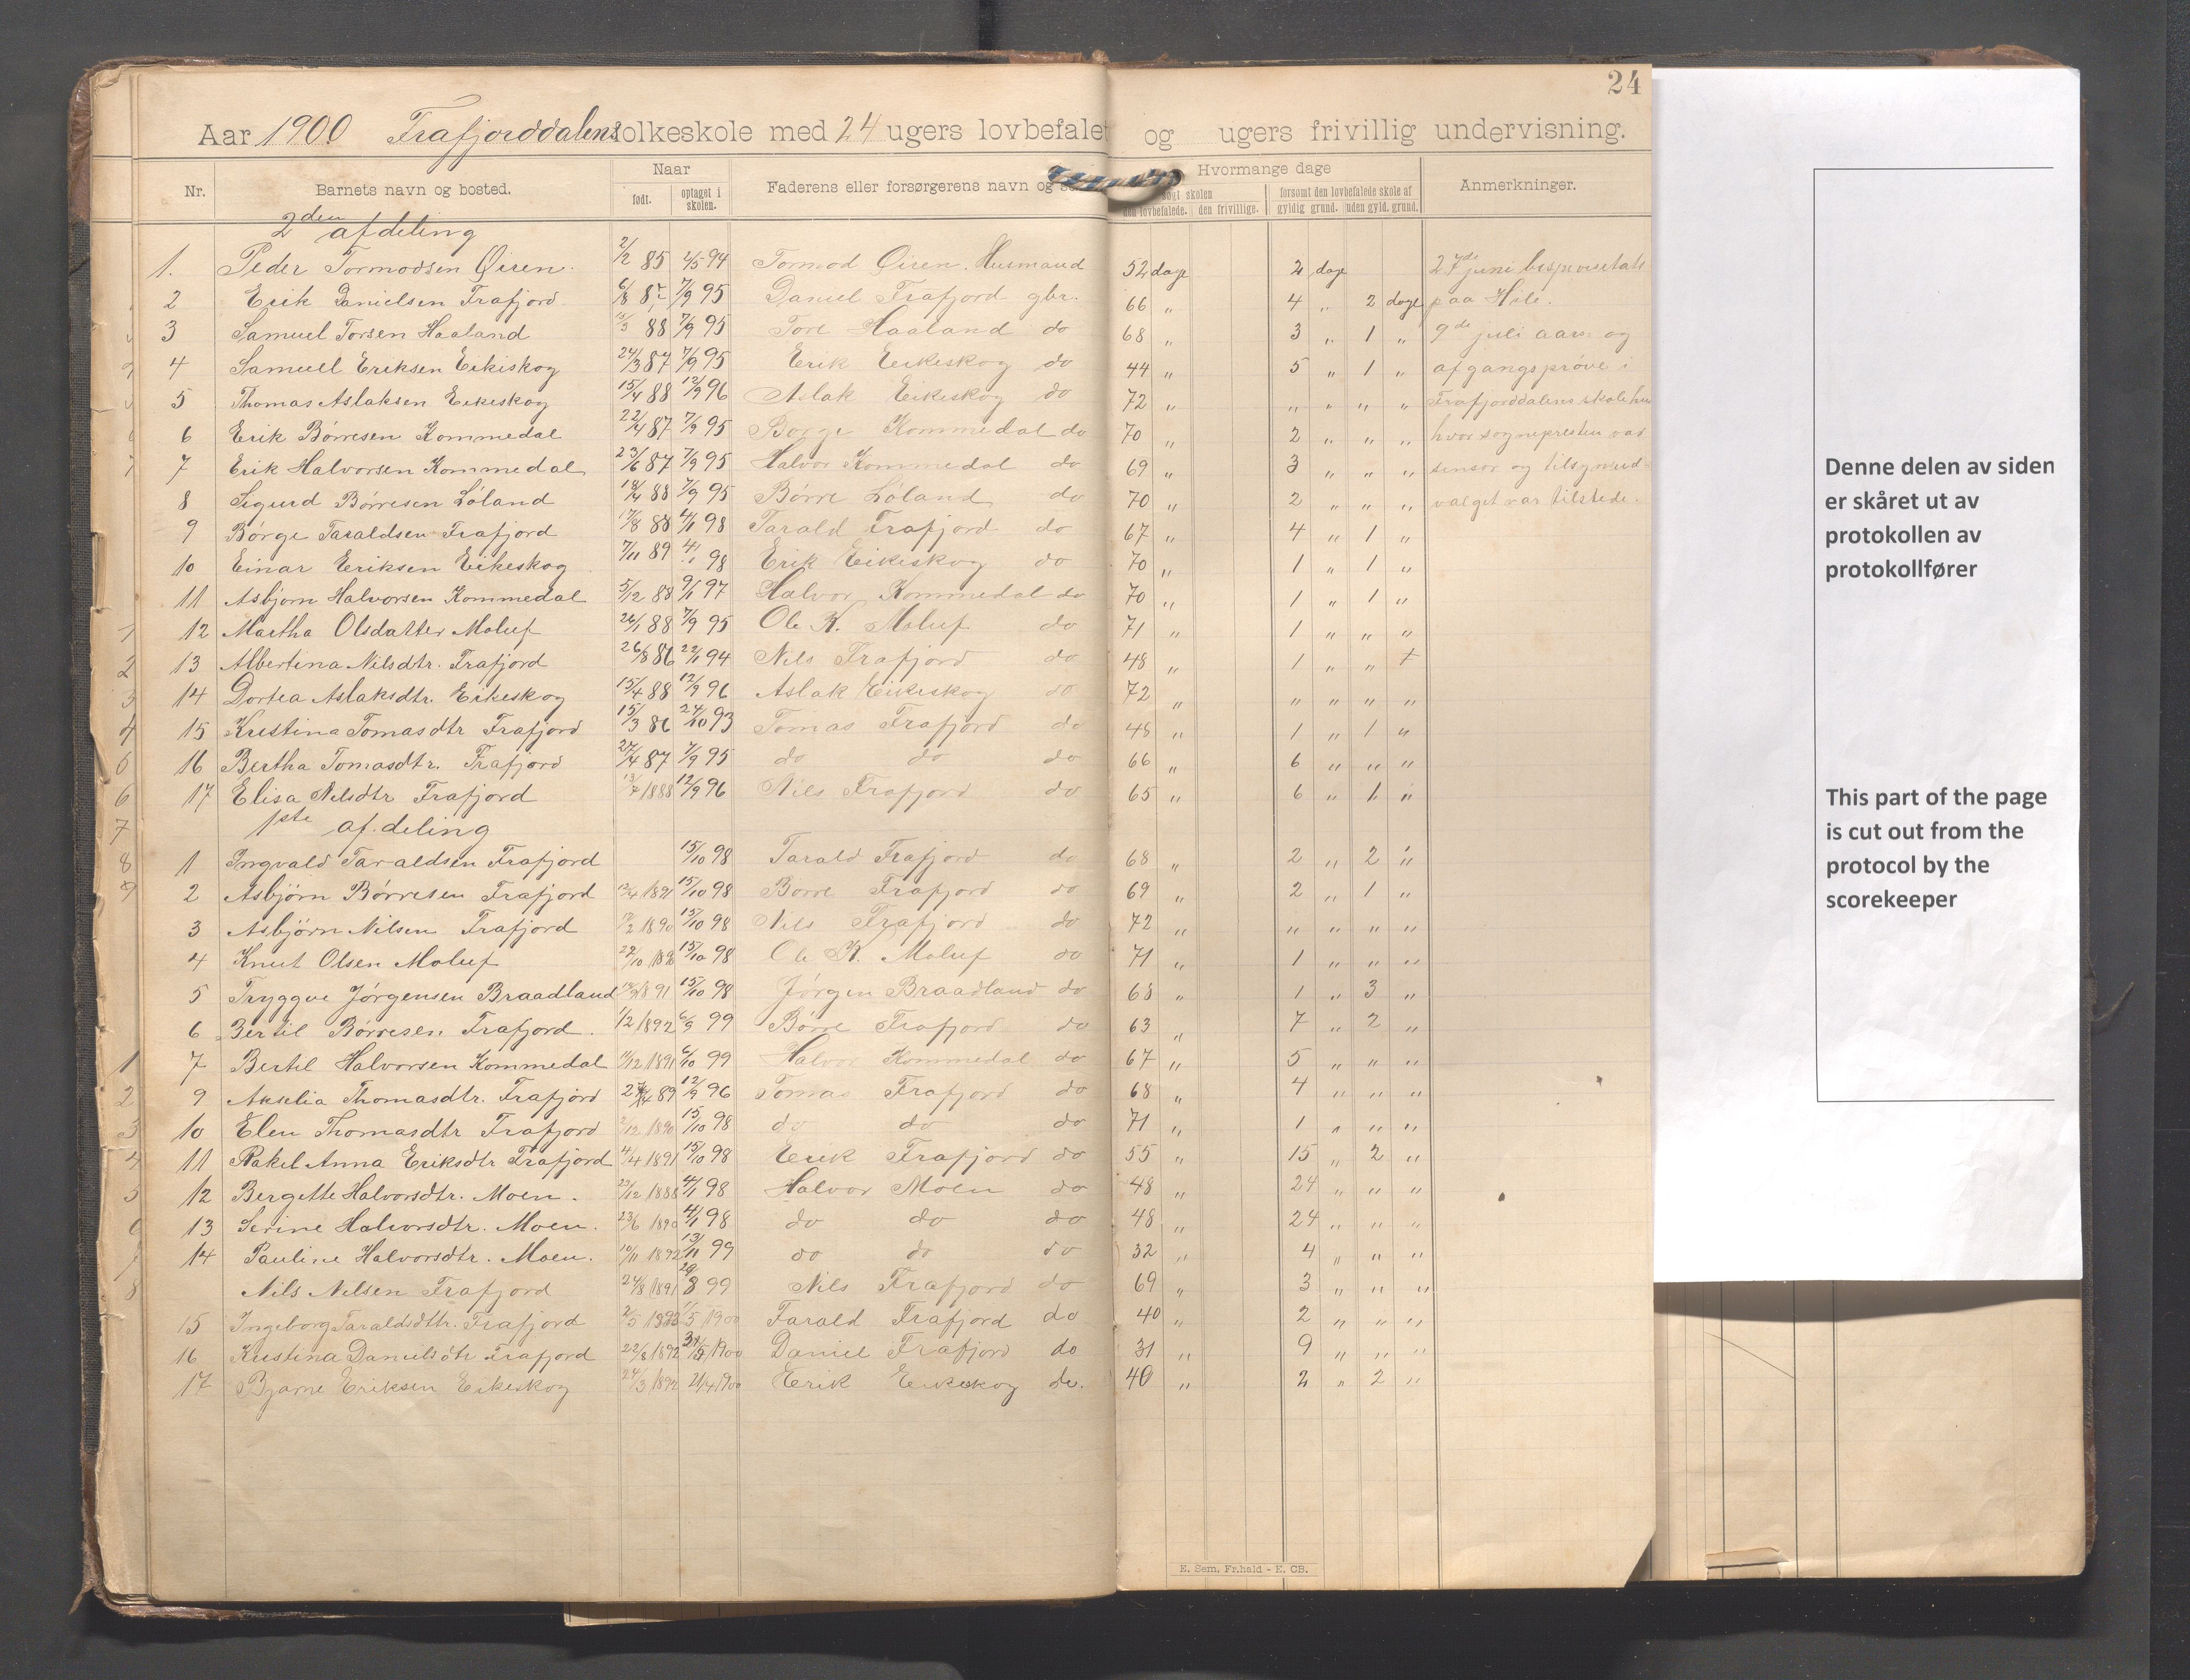 24
Aar 1900 Frafjorddalens folkeskole med 24 ugers lovbefalet og ugers frivillig undervisning.
Nr. Barnets navn og bosted. Naar født. optaget i skolen. Faderens eller forsørgerens navn og Hvormange dage søgt skolen den lovbefalede. den frivillige. forsømt den lovbefalede skole af gyldig grund. uden gyld. grund. Anmerkninger.
2den afdeling
1. Peder Tormodsen Øiren. 2/2 85 2/5 94 Tormod Øiren. Husmand 52 dage 2 dage 27de juni bispevisitats
2 Erik Danielsen Frafjord 6/8 7/9 95 Daniel Frafjord gbr. 66 " 4 " 2 dage paa Hile.
3 Samuel Torsen Haaland 88 7/9 95 Tore Haaland do 68 " 3 " 1 " 9de juli aars- og
4 Samuel Eriksen Eikiskog 24/3 87 7/9 95 Erik Eikeskog do 44 " 5 " 1 " afgangsprøve i
5 Thomas Aslaksen Eikeskog 15/4 88 12/9 96 Aslak Eikeskog do 72 " " " " " Frafjorddalens skolehus
6 Erik Børresen Kommedal 22/4 87 7/9 95 Børge Kommedal do 70 " 2 " " " hvor sognepresten var
7 Erik Halvorsen Kommedal 23/6 87 7/9 95 Halvor Kommedal do 69 " 3 " " " sensor og tilsynsud-
8 Sigurd Børresen Løland 18/4 88 7/9 95 Børre Løland do 70 " 2 " " " valget var tilstede.
9 Børge Taraldsen Frafjord 17/8 88 4/1 98 Tarald Frafjord do 67 " 4 " 1 "
10 Einar Eriksen Eikeskog 7/11 89 4/1 98 Erik Eikeskog do 70 " 1 " 1 "
11 Asbjørn Halvorsen Kommedal 5/12 88 9/1 97 Halvor Kommedal do 70 " 1 " 1 "
12 Martha Olsdatter Moluf 26/1 88 7/9 95 Ole K. Moluf do 71 " 1 " " "
13 Albertina Nilsdtr. Frafjord 26/8 86 22/1 94 Nils Frafjord do 48 " 1 " "
14 Dortea Aslaksdtr. Eikeskog 15/4 88 12/9 96 Aslak Eikeskog do 72 " " " " "
15 Kristina Tomasdtr Frafjord 15/3 86 24/10 93 Tomas Frafjord do 48 " 1 " 1 "
16 Bertha Tomasdtr. Frafjord 27/4 87 7/9 95 do do do 66 " 6 " " "
17 Elisa Nilsdtr Frafjord 13/7 1888 12/9 96 Nils Frafjord do 65 " 6 " 1 "
1ste afdeling
1 Ingvald Taraldsen Frafjord 15/10 98 Tarald Frafjord do 68 " 2 " 2 "
2 Asbjörn Børresen Frafjord 12/4 1891 15/10 98 Børre Frafjord do 69 " 2 " 1 "
3 Asbjörn Nilsen Frafjord 1890 15/10 98 Nils Frafjord do 72 " " " " "
4 Knut Olsen Moluf 15/10 98 Ole K. Moluf do 71 " 1 " " "
5 Tryggve Jørgensen Braadland 1891 15/10 98 Jørgen Braadland do 68 " 1 " 3 "
6 Bertil Børresen Frafjord. 1/2 1892 6/9 99 Børre Frafjord do 63 " 7 " 2 "
7 Bertil Halvorsen Kommedal 1891 6/10 99 Halvor Kommedal do 67 " 5 " " "
9 Akselia Thomasdtr. Frafjord 89 12/9 96 Tomas Frafjord do 68 " 4 " " "
10 Elen Thomasdtr Frafjord 1890 15/10 98 do do do 71 " 1 " " "
11 Rakel Anna Eriksdtr Frafjord 4/4 1891 15/10 98 Erik Frafjord do 55 " 15 " 2 "
12 Bergette Halvorsdtr. Moen. 23/12 1888 4/1 98 Halvor Moen do 48 " 24 " " "
13 Serine Halvorsdtr. Moen. 23/6 1890 4/1 98 do do do 48 " 24 " " "
14 Pauline Halvorsdtr. Moen. 10/11 1892 13/11 99 do do do 32 " 4 " " "
Nils Nilsen Frafjord 24/8 1891 29/8 99 Nils Frafjord do 69 " 3 " " "
15 Ingeborg Taraldsdtr. Frafjord 1/5 1900 Tarald Frafjord do 40 " 2 " " "
16 Kristina Danielsdtr Frafjord 22/8 1892 1900 Daniel Frafjord do 31 " 9 " " "
17 Bjarne Eriksen Eikeskog 24/3 1892 2/4 1900 Erik Eikeskog do. 40 " 2 " 2 "
E. Sem, Fr.hald - E. CB.
Denne delen av siden
er skåret ut av
protokollen av
protokollfører
This part of the page
is cut out from the
protocol by the
scorekeeper